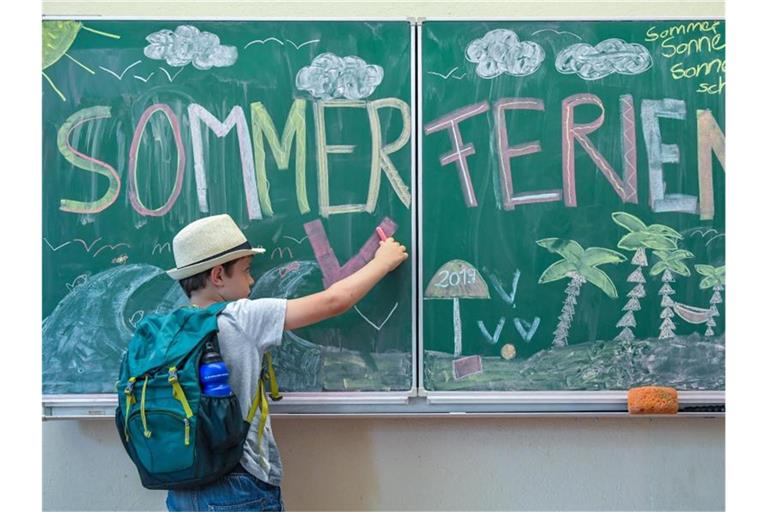 SOMMER FERIEN
Sommer
Sonne
Sonne
2017